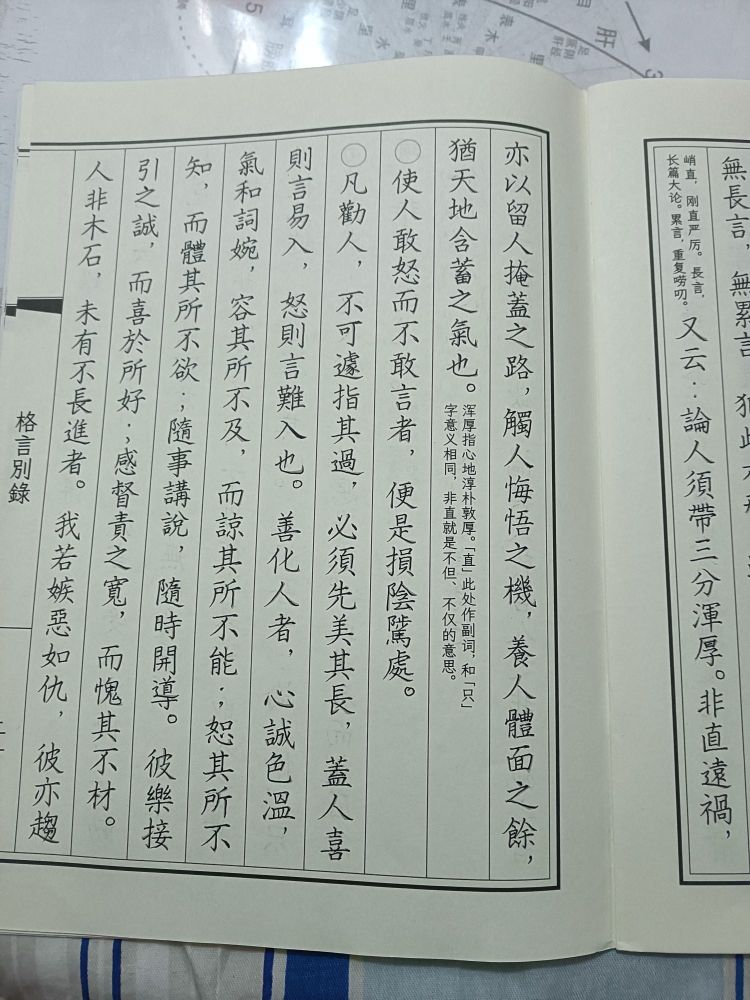 無長言，無累言，
峭直，刚直严厉。長言，
长篇大论。累言，重复唠叨。
又云：論人須帶三分渾厚。非直遠禍，
亦以留人掩蓋之路，觸人悔悟之機，養人體面之餘，
猶天地含蓄之氣也。
浑厚指心地淳朴敦厚。「直」此处作副词，和「只」
字意义相同，非直就是不但、不仅的意思。
○使人敢怒而不敢言者，便是損陰騭處。
○凡勸人，不可遽指其過，必須先美其長，蓋人喜
則言易入，怒則言難入也。善化人者，心誠色溫，
氣和詞婉，容其所不及，而諒其所不能；恕其所不
知，而體其所不欲；隨事講說，隨時開導。彼樂接
引之誠，而喜於所好；感督責之寬，而愧其不材。
人非木石，未有不長進者。我若嫉惡如仇，彼亦趨
格言別錄
肝
里
表
水
里
5
3